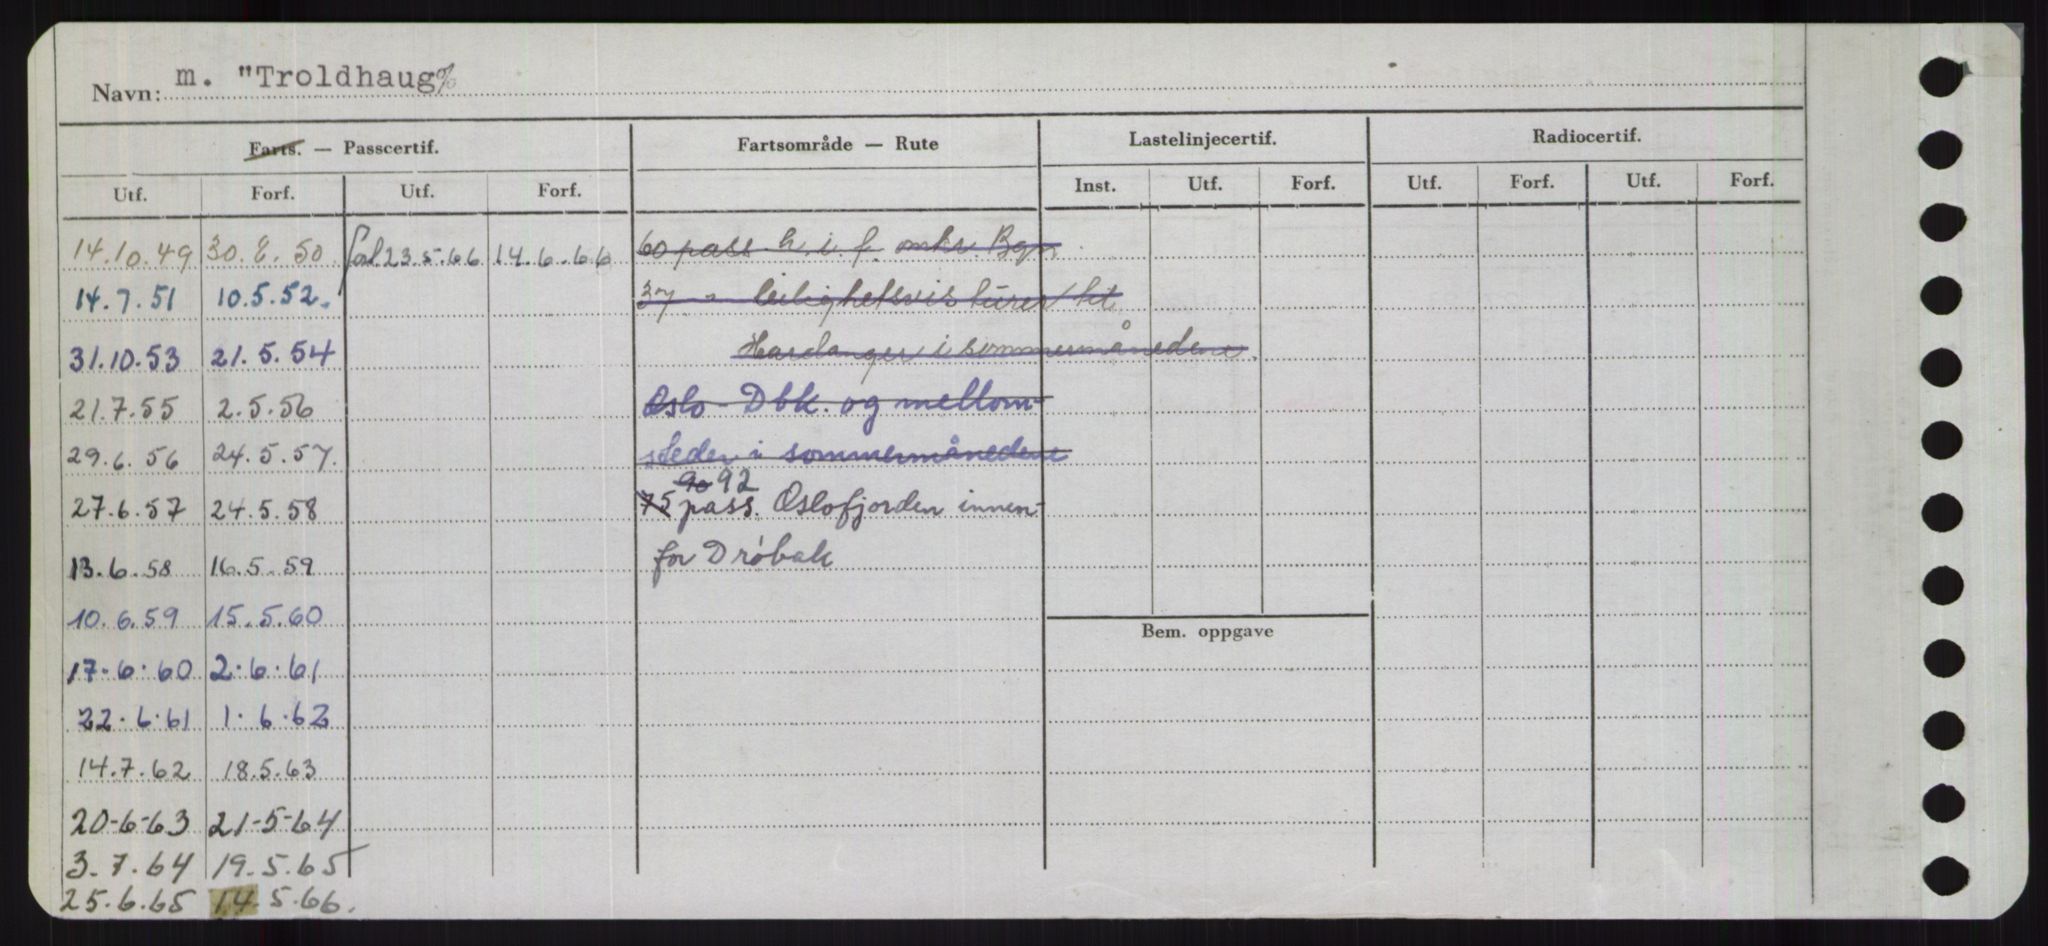 Navn: m. "Troldhaug%
Farts. — Passcertif. Fartsområde — Rute Lastelinjecertif. Radiocertif.
Utf. Forf. Utf. Forf. Inst. Utf. Forf. Utf. Forf. Utf. Forf.
14.10.49 30.8.50 forl 23.5.66 14.6.66 60 pass h.i.f. omkr. Bgn
14.7.51 10.5.52. 37 - leilighetsvis turer til
31.10.53 21.5.54 Hardanger i sommermånedene.
21.7.55 2.5.56 Oslo - Dbk. og mellom-
29.6.56 24.5.57. steder i sommermånedene
90 92
27.6.57 24.5.58 75 pass. Oslofjorden innen-
13.6.58 16.5.59 for Drøbak
10.6.59 15.5.60
Bem. oppgave
17.6.60 2.6.61
22.6.61 1.6.62
14.7.62 18.5.63
20-6-63 21-5-64
3.7.64 19.5.65
25.6.65 14.5.66.